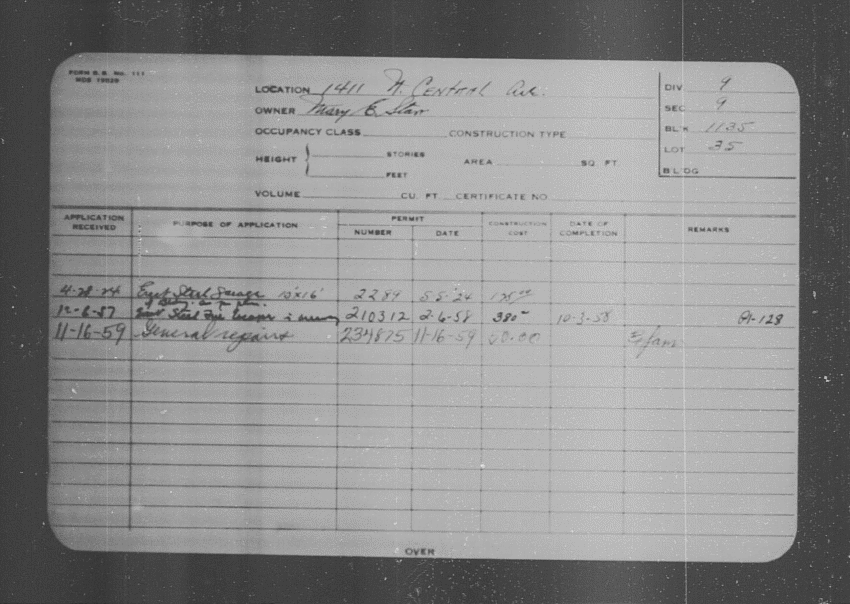 FORM B.B. No. 111
MDE 19029
LOCATION 1411 N. Central Ave.
OWNER Mary E. Starr
OCCUPANCY CLASS CONSTRUCTION TYPE
HEIGHT STORIES FEET AREA SQ. FT
VOLUME CU. FT. CERTIFICATE NO
DIV. 9
SEC. 9
BL'K 1135
LOT 35
BLDG
APPLICATION RECEIVED PURPOSE OF APPLICATION PERMIT NUMBER DATE CONSTRUCTION COST DATE OF COMPLETION REMARKS
4-28-24 Erect Steel Garage 10'x16' 2289 5-5-24
of Bldg. as per plan.
Erect Steel Fire Escape 210312 2-6-58 380 10-3-58
11-16-59 General repairs 234875 11-16-59
OVER